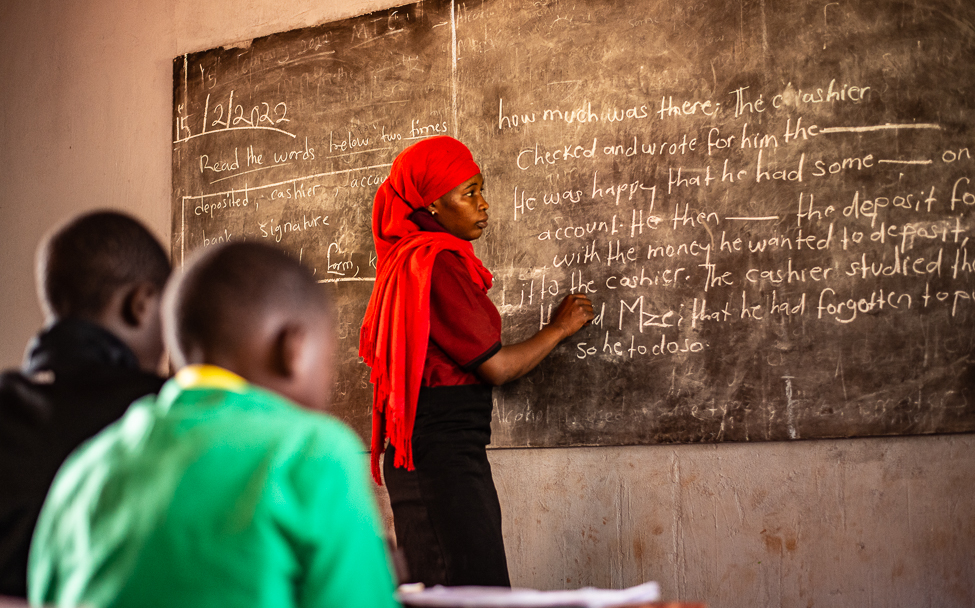 15/2/2022
Read the words below two times
deposited, cashier, accou
bank signature
form, k
how much was there; The cashier
Checked and wrote for him the
He was happy that he had some on
account. He then the deposit fo
with the money he wanted to deposit,
it to the cashier. The cashier studied the
Mzei that he had forgotten to p
so he to do so.